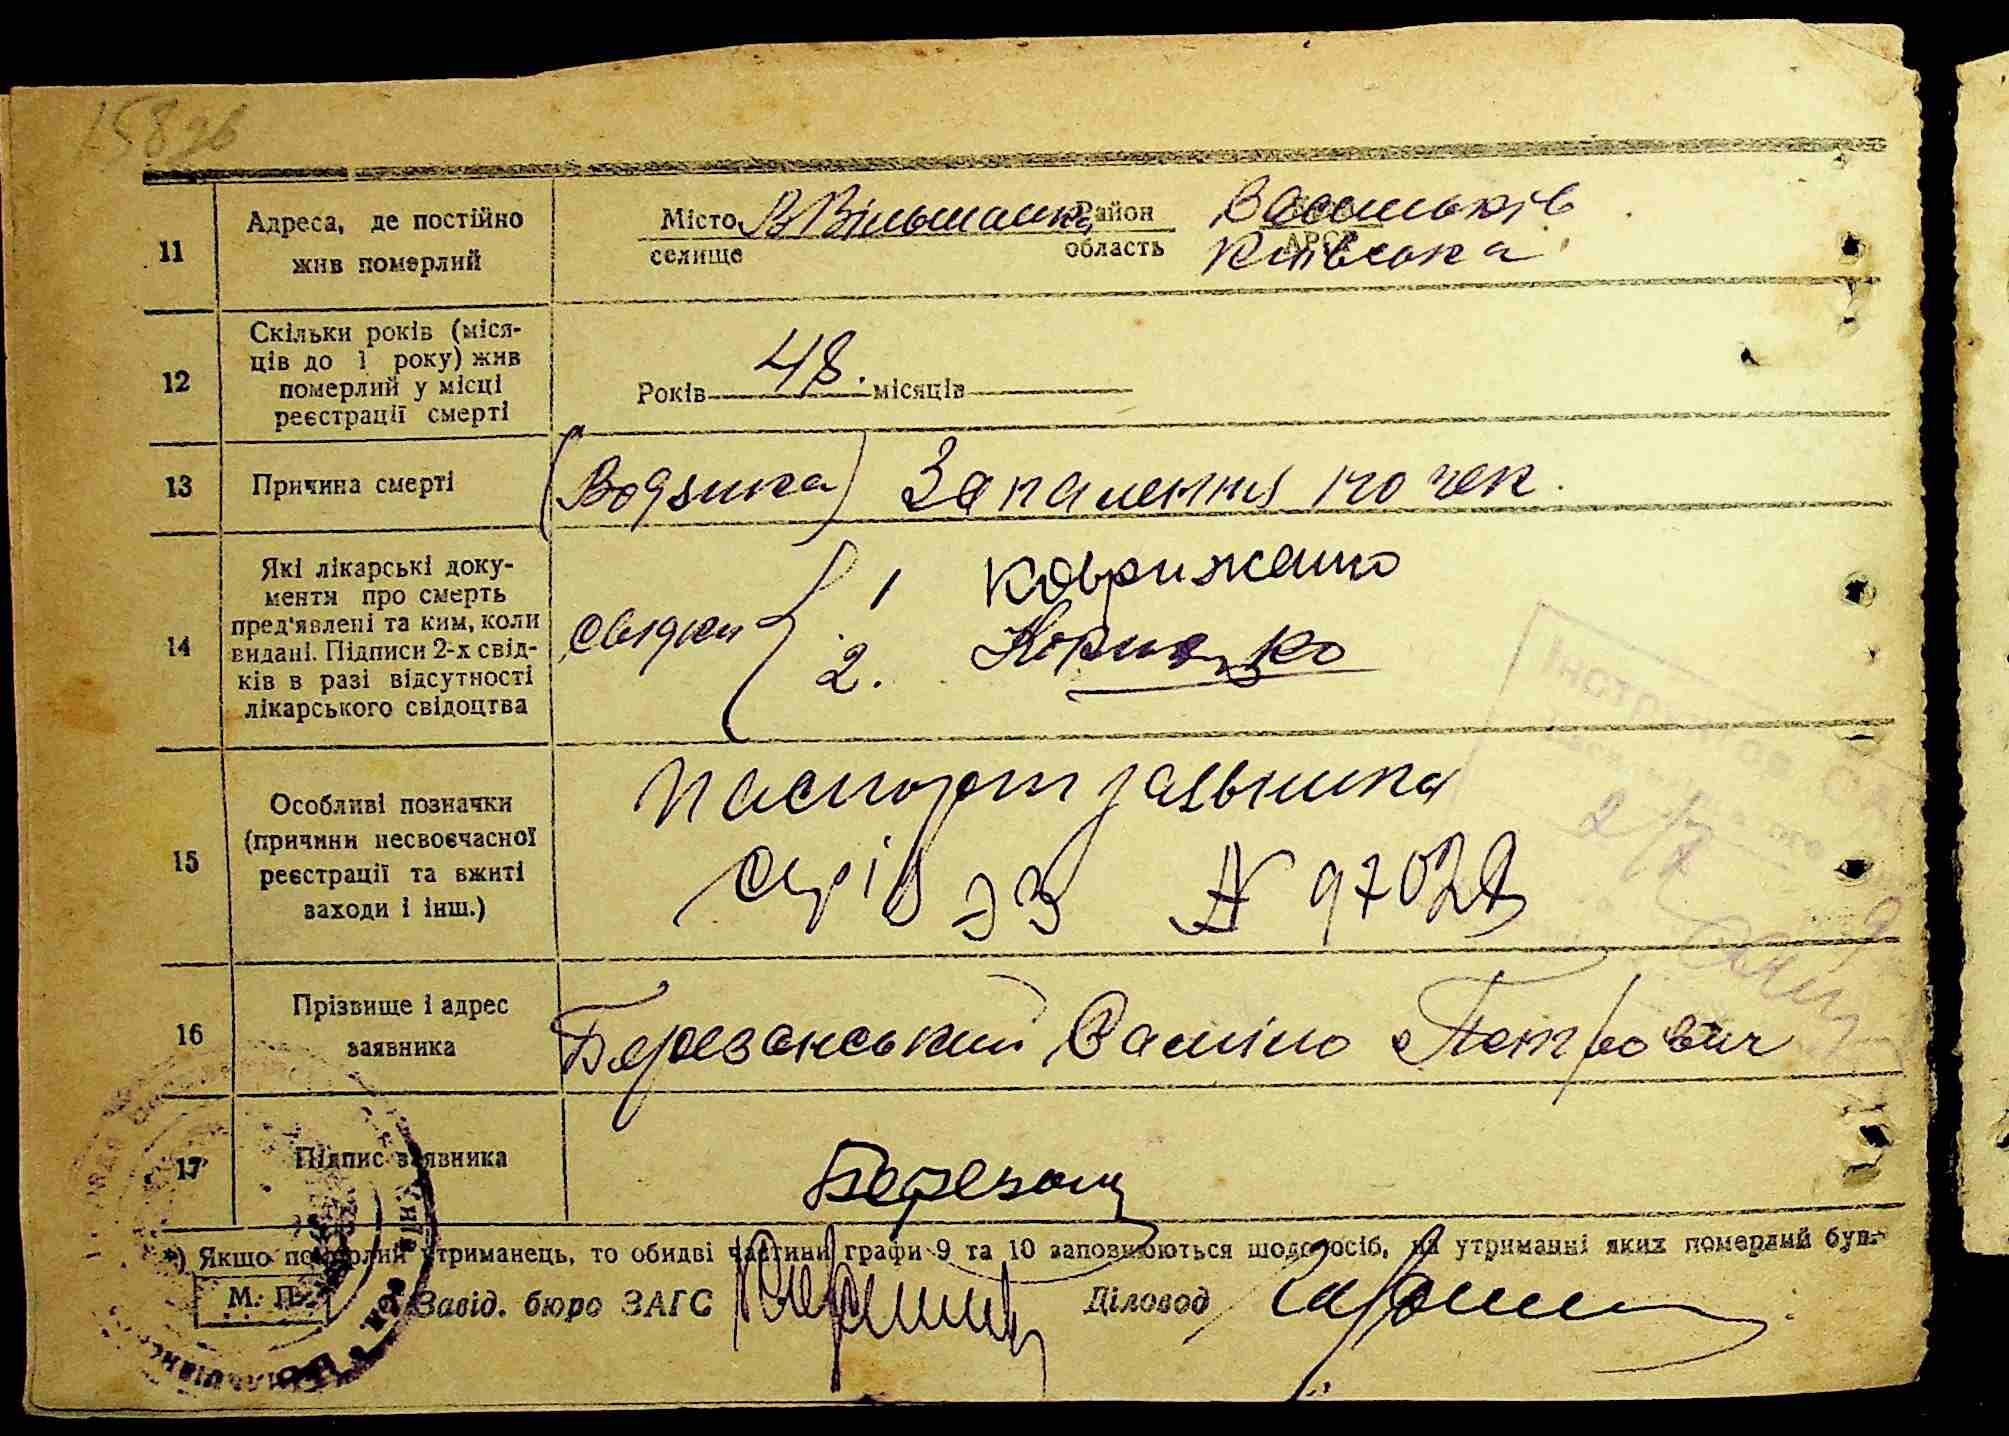 158зв
11 Адреса, де постійно жив померлий
Місто В Вільшанка Район Васильків
селище область Київська
12 Скільки років (міся-
ців до 1 року) жив
померлий у місці
реєстрації смерті
Років 48. місяців
13 Причина смерті (Водянка) Запалення почек.
14 Які лікарські доку-
менти про смерть
пред'явлені та ким, коли
видані. Підписи 2-х свід-
ків в разі відсутності
лікарського свідоцтва
Свідки 1 Ковриженко
2.
15 Особливі позначки
(причини несвоєчасної
реєстрації та вжиті
заходи і інш.)
Паспорт заявника
серія ЭЗ №
16 Прізвище і адрес
заявника
Березанський Петрович
17 Підпис заявника
Березан
*) Якщо померлий утриманець, то обидві частини графи 9 та 10 заповнюються щодо осіб, на утриманні яких померлий був.
М. П. Завід. бюро ЗАГС Діловод